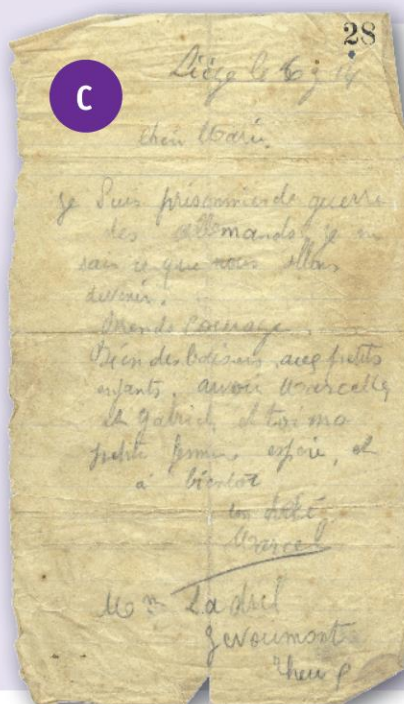 28
C
Liège le 6
chèr Marie.
je suis prisonnier de guerre
des allemands je ne
sais ce que nous allons
devenir.
Prends courage.
Bien des baisers aux petits
enfants, auvoir Marcelle
et Gabriel, et toi ma
petite femme espère, et
à bientot
Marcel
Mme Ladril
Jevoumont
Theux